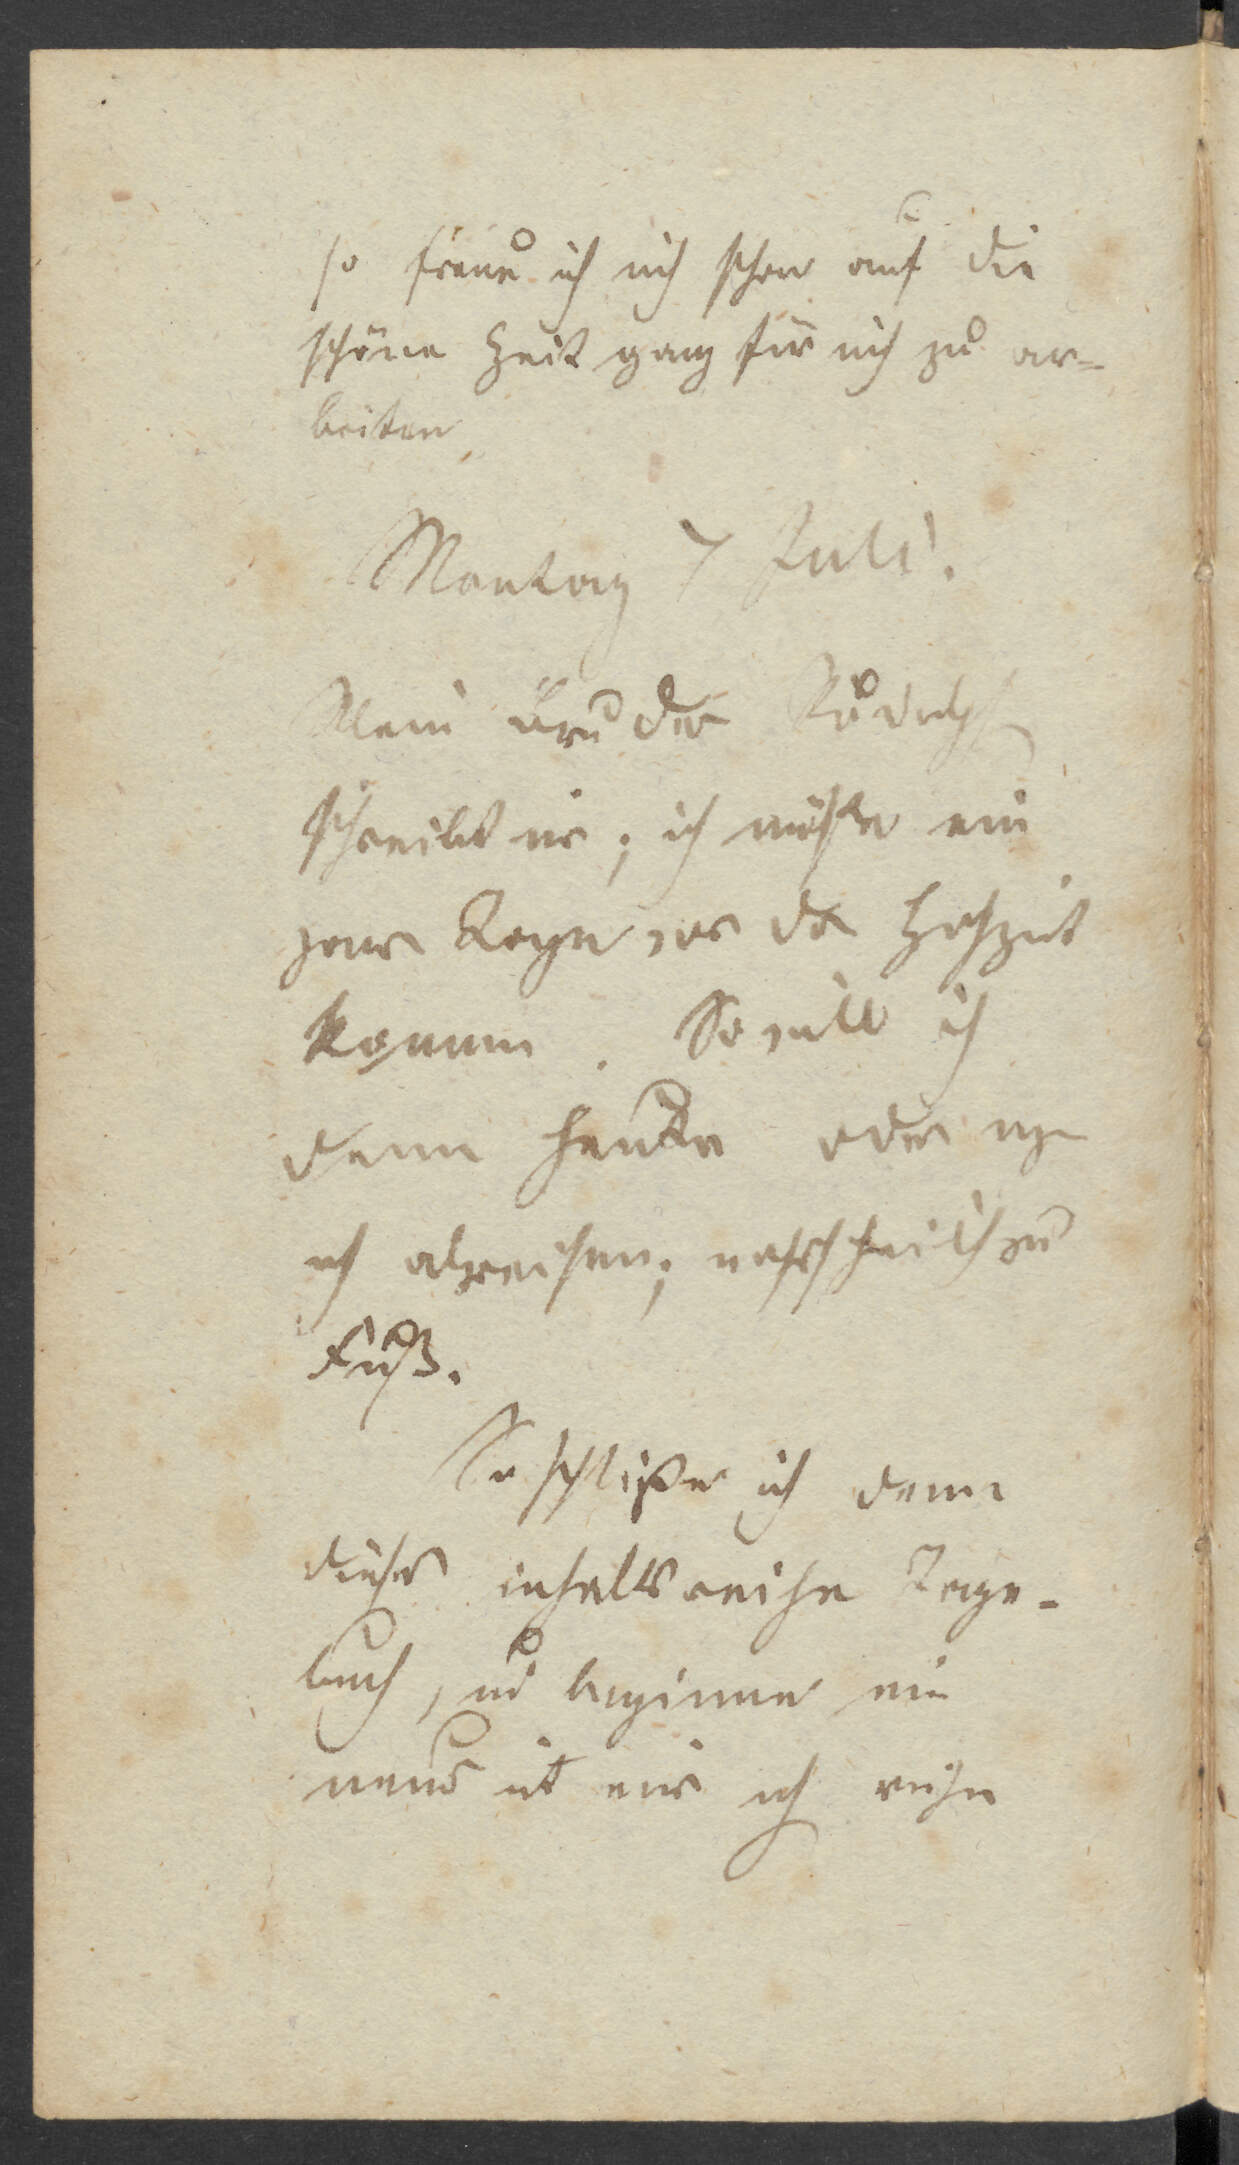 so freue ich mich schon auf die
schöne Zeit ganz für mich zu ar=
beiten
Montag 7 Juli.
Mein Bruder Rudolph
schreibt mir; ich möchte ein
paar Tage vor der Hochzeit
kommen. So will ich
denn heute oder
abreisen; wahrscheinlich zu
Fuß.
So schließe ich denn
dieses inhaltsreiche Tage-
buch, und beginne ein
neues mit